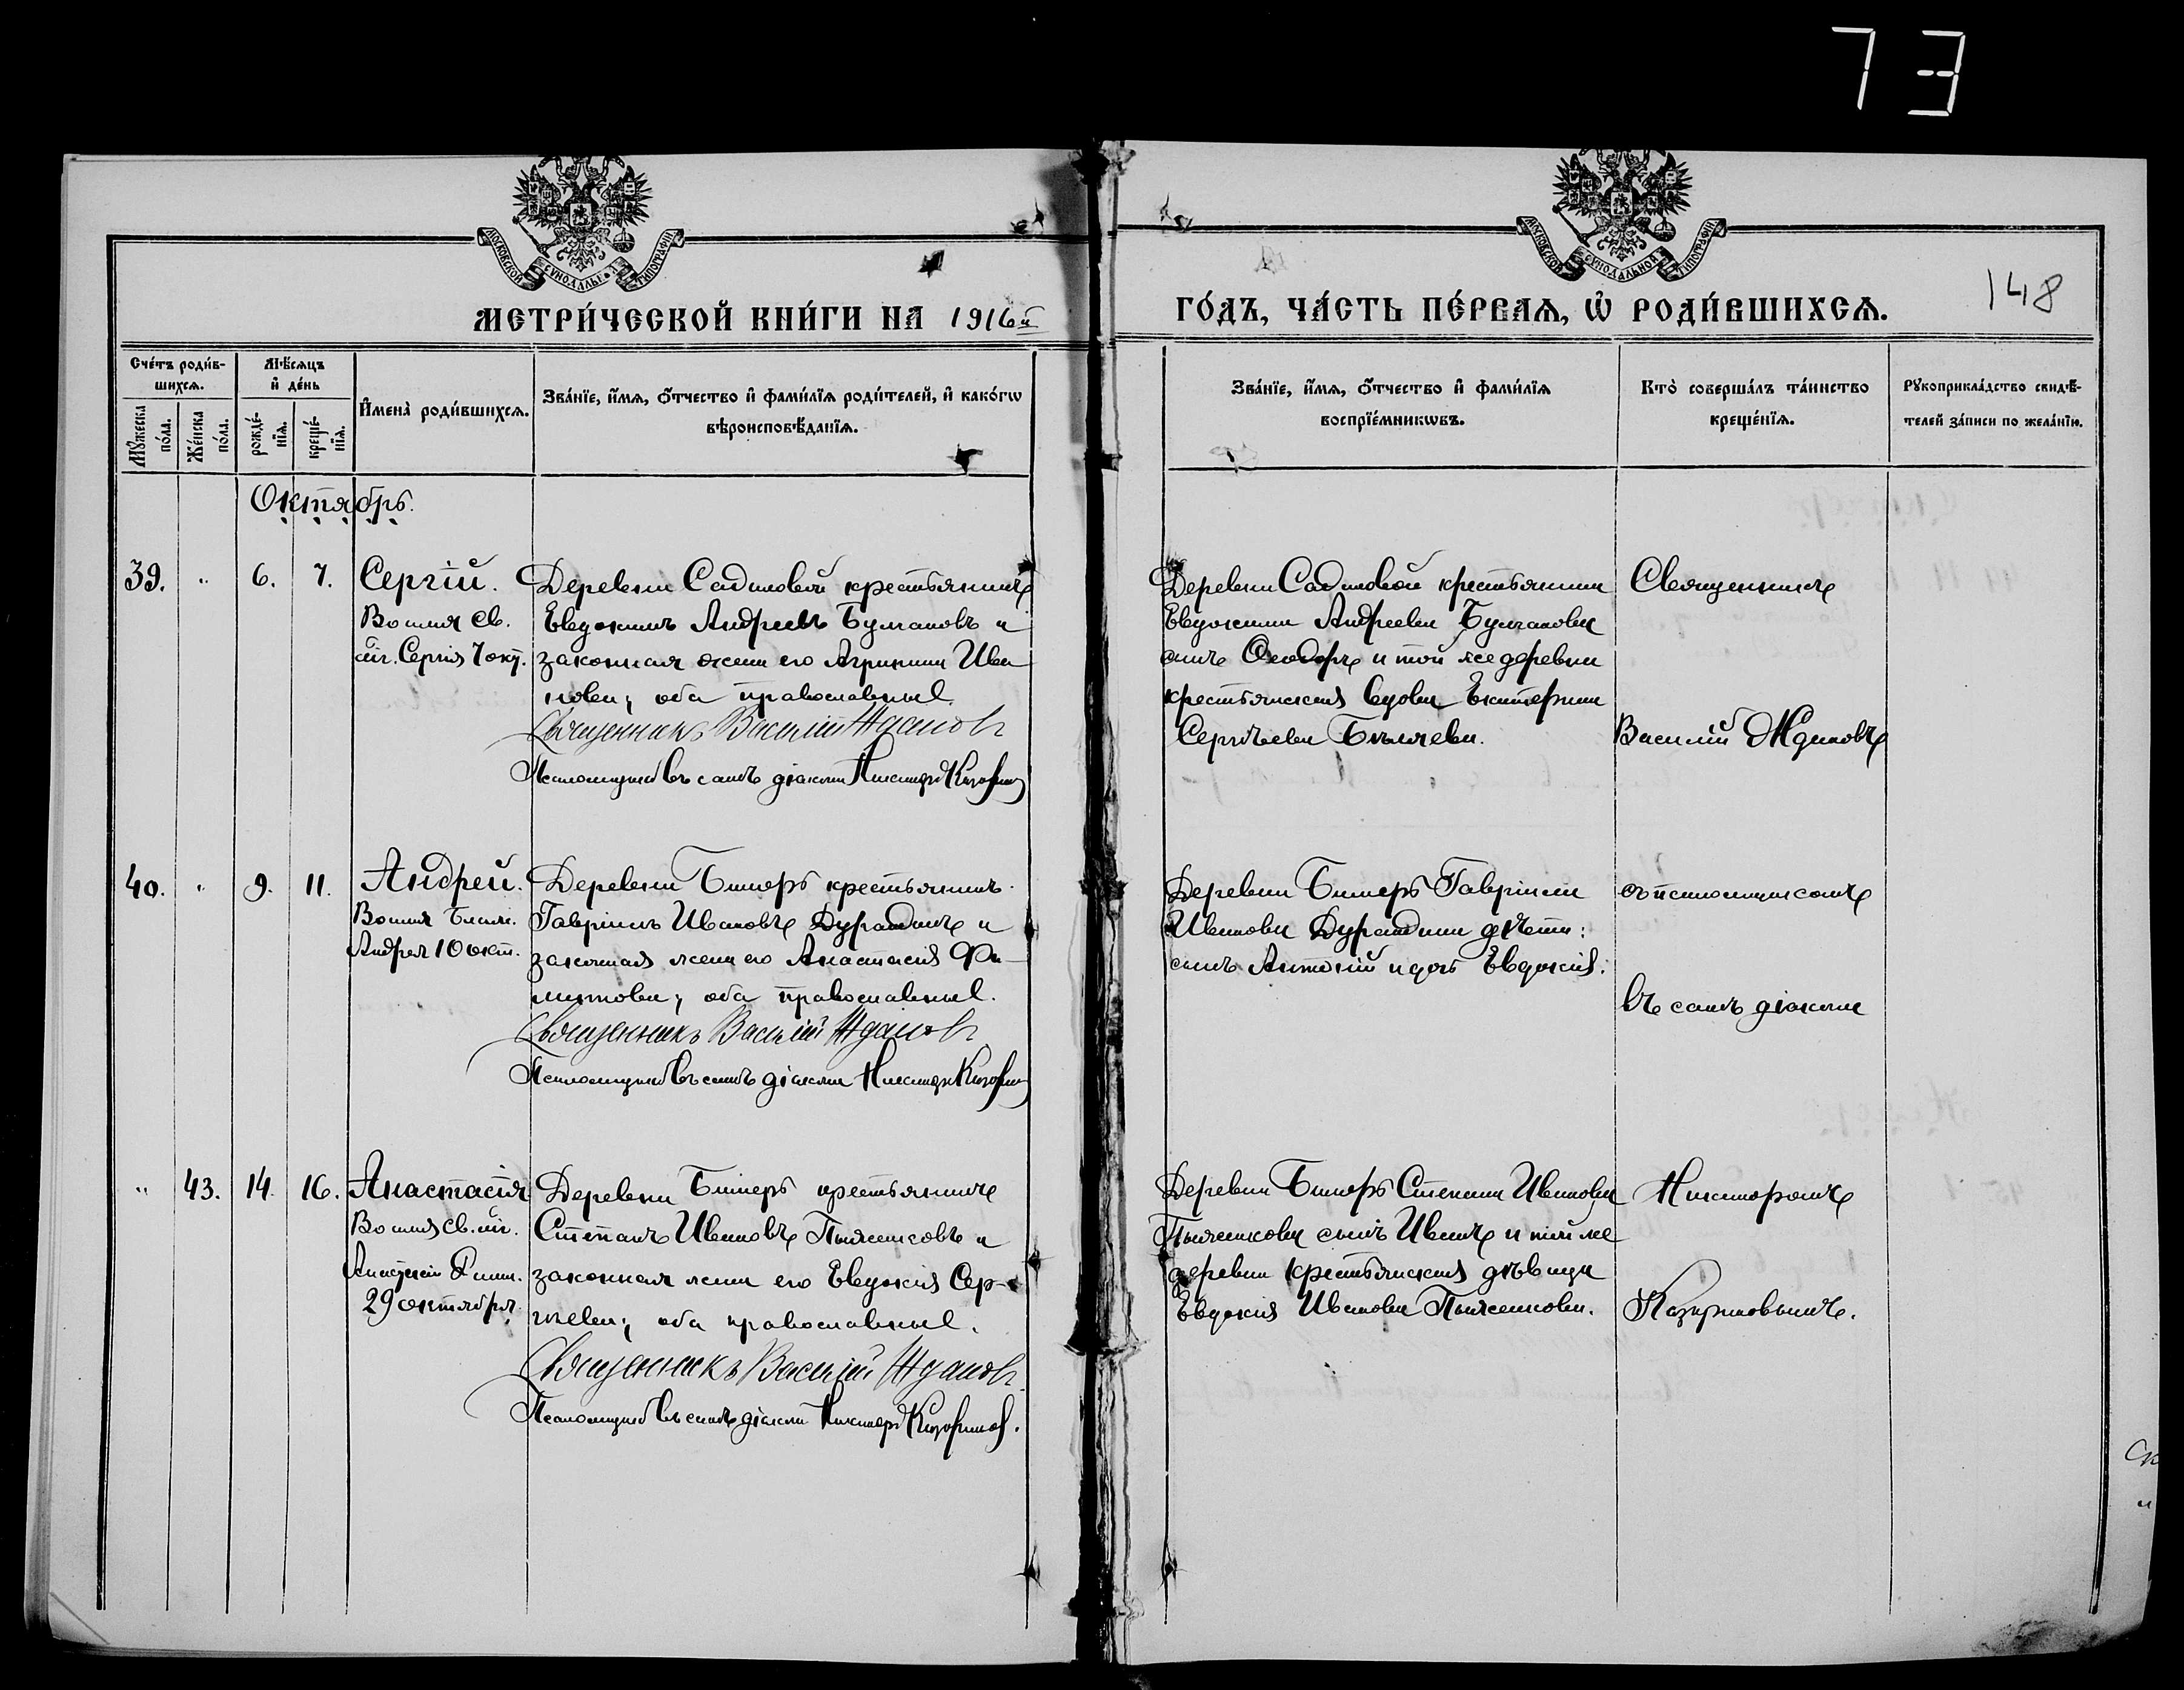 73
МОСКОВСКОЙ СУНОДАЛЬНОЙ ТИПОГРАФІИ
МОСКОВСКОЙ СУНОДАЛЬНОЙ ТИПОГРАФІИ
МЕТРИ́ЧЕСКОЙ КНИ́ГИ НА 1916й
ГО́ДЪ, ЧА́СТЬ ПЕ́РВАѦ, Ѡ҆ РОДИ́ВШИХСѦ.
148
Сче́тъ роди́в-
шихсѧ.
Мꙋ́жеска
по́ла.
Же́нска
по́ла.
Мѣ́сѧцъ
и҆ де́нь
рожде́-
нїѧ.
креще́-
нїѧ.
И҆мена̀ роди́вшихсѧ.
Зва́нїе, и҆́мѧ, ѻ҆́тчество и҆ фами́лїѧ роди́телей, и҆ како́гѡ
вѣроисповѣ́данїѧ.
Зва́нїе, и҆́мѧ, ѻ҆́тчество и҆ фами́лїѧ
воспрїе́мникѡвъ.
Кто̀ соверша́лъ та́инство
креще́нїѧ.
Рꙋкоприкла́дство свидѣ́-
телей за́писи по жела́нїю.
Октябрь.
39. " 6. 7.
Сергій.
Во имя св.
мч. Сергія 7 окт.
Деревни Садиловой крестьянинъ
Евдокимъ Андреевъ Булгаковъ и
законная жена его Агрипина Ива
нова; оба православные.
Священникъ Василій Ждановъ
Псаломщикъ въ санѣ діакона Никаноръ
Деревни Садиловой крестьянина
Евдокима Андреева Булгакова
сынъ Ѳеодоръ и той же деревни
крестьянская вдова Екатерина
Сергѣева Бѣляева.
Священникъ
Василій Ждановъ
40. " 9. 11.
Андрей.
Во имя блаж.
Андрея 10 окт.
Деревни крестьянинъ
Гавріилъ Ивановъ Дурандинъ и
законная жена его Анастасія Фи-
липпова; оба православные.
Священникъ Василій Ждановъ
Псаломщикъ въ санѣ діакона Никаноръ
Деревни Гавріила
Иванова Дурандина дѣти:
сынъ Антоній и дочь Евдокія.
съ псаломщикомъ
въ санѣ діакона
" 43. 14. 16.
Анастасія
Во имя св. мч.
Анастасіи Римл.
29 октября.
Деревни крестьянинъ
Степанъ Ивановъ и
законная жена его Евдокія Сер-
гѣева; оба православные.
Священникъ Василій Ждановъ
Псаломщикъ въ санѣ діакона Никаноръ
Деревни Степана Иванова
сынъ Иванъ и той же
деревни крестьянская дѣвица
Евдокія Иванова
Никаноромъ